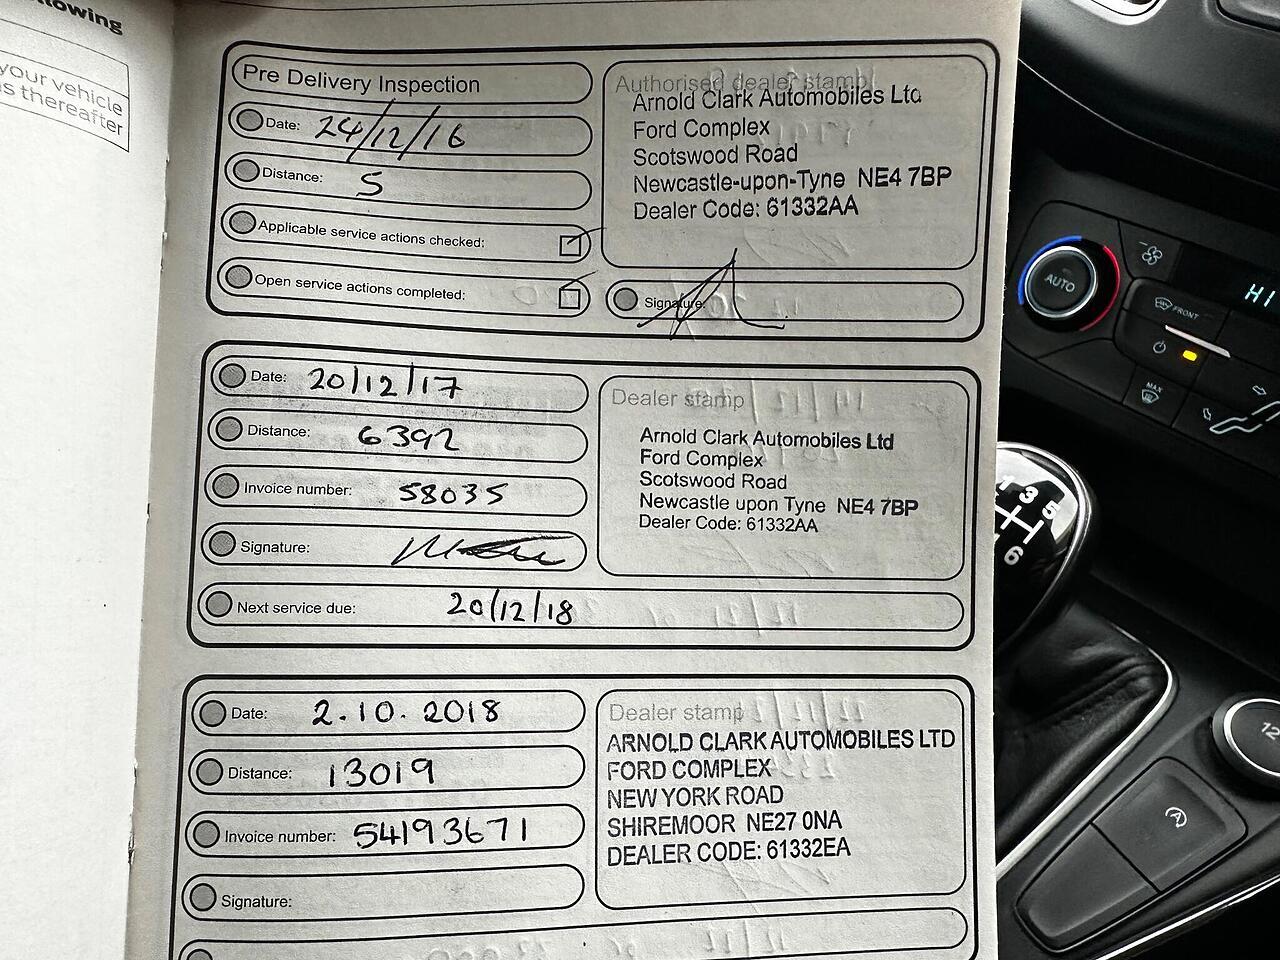 llowing
your vehicle
s thereafter
Pre Delivery Inspection
Date: 24/12/16
Distance: 5
Applicable service actions checked:
Open service actions completed:
Authorised dealer stamp
Arnold Clark Automobiles Ltd
Ford Complex
Scotswood Road
Newcastle-upon-Tyne NE4 7BP
Dealer Code: 61332AA
Signature:
Date: 20/12/17
Distance: 6392
Invoice number: 58035
Signature:
Next service due: 20/12/18
Dealer stamp
Arnold Clark Automobiles Ltd
Ford Complex
Scotswood Road
Newcastle upon Tyne NE4 7BP
Dealer Code: 61332AA
Date: 2.10.2018
Distance: 13019
Invoice number: 54193671
Signature:
Dealer stamp
ARNOLD CLARK AUTOMOBILES LTD
FORD COMPLEX
NEW YORK ROAD
SHIREMOOR NE27 0NA
DEALER CODE: 61332EA
AUTO
HI
FRONT
MAX
1 3 5
6
12
A